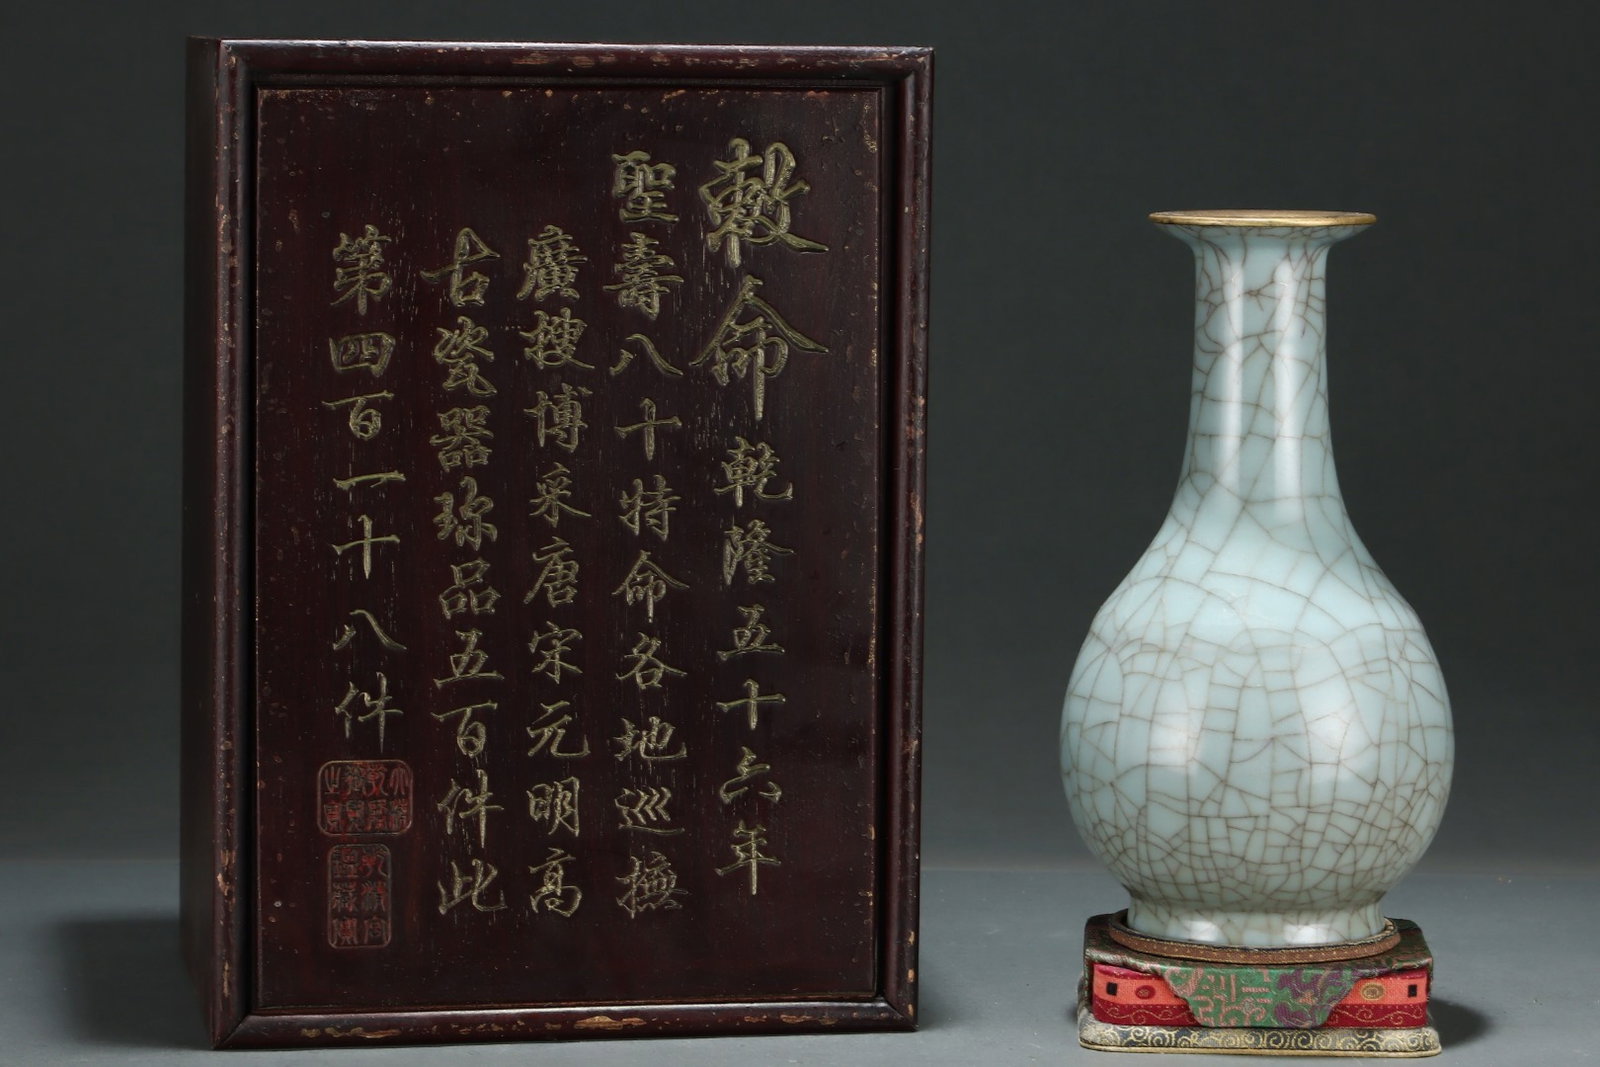 敕命乾隆五十六年
聖壽八十特命各地巡撫
廣搜博采唐宋元明高
古瓷器珎品五百件此
第四百一十八件